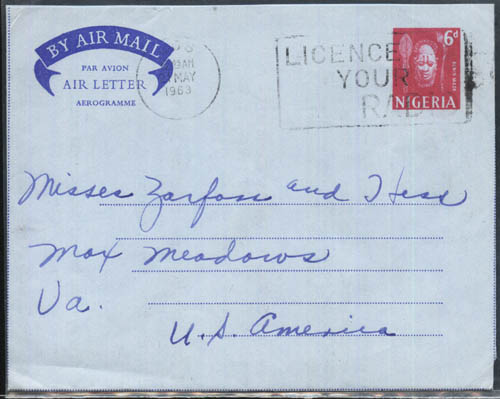 BY AIR MAIL
PAR AVION
AIR LETTER
AEROGRAMME
AM
MAY
1963
LICENCE
YOUR
RAD
6d
NIGERIA
Misses Zarfoss and Hess
Max Meadows
Va.
U.S. America